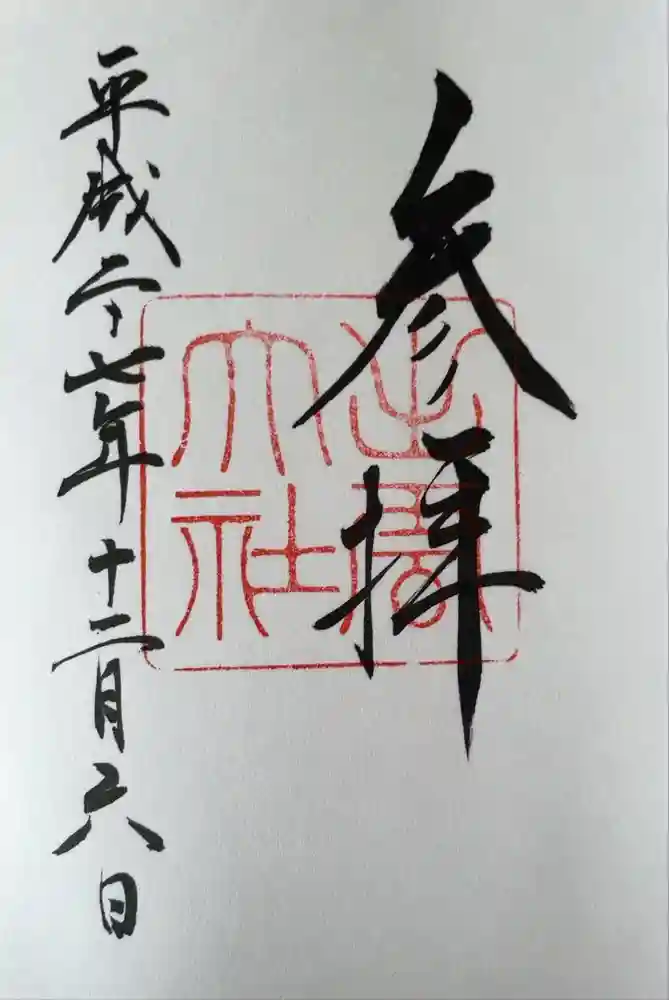 参拝
出雲
大社
平成二十七年十二月六日